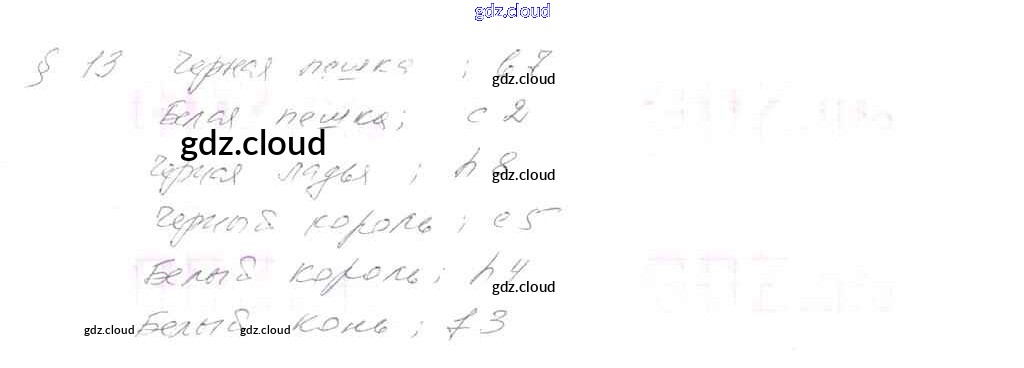 gdz.cloud
§ 13 Черная пешка ; b7
gdz.cloud
Белая пешка; c 2
gdz.cloud
Черная ладья ; h 8
gdz.cloud
Черный король ; e5
Белый король; h4
gdz.cloud
Белый конь ; f3
gdz.cloud gdz.cloud